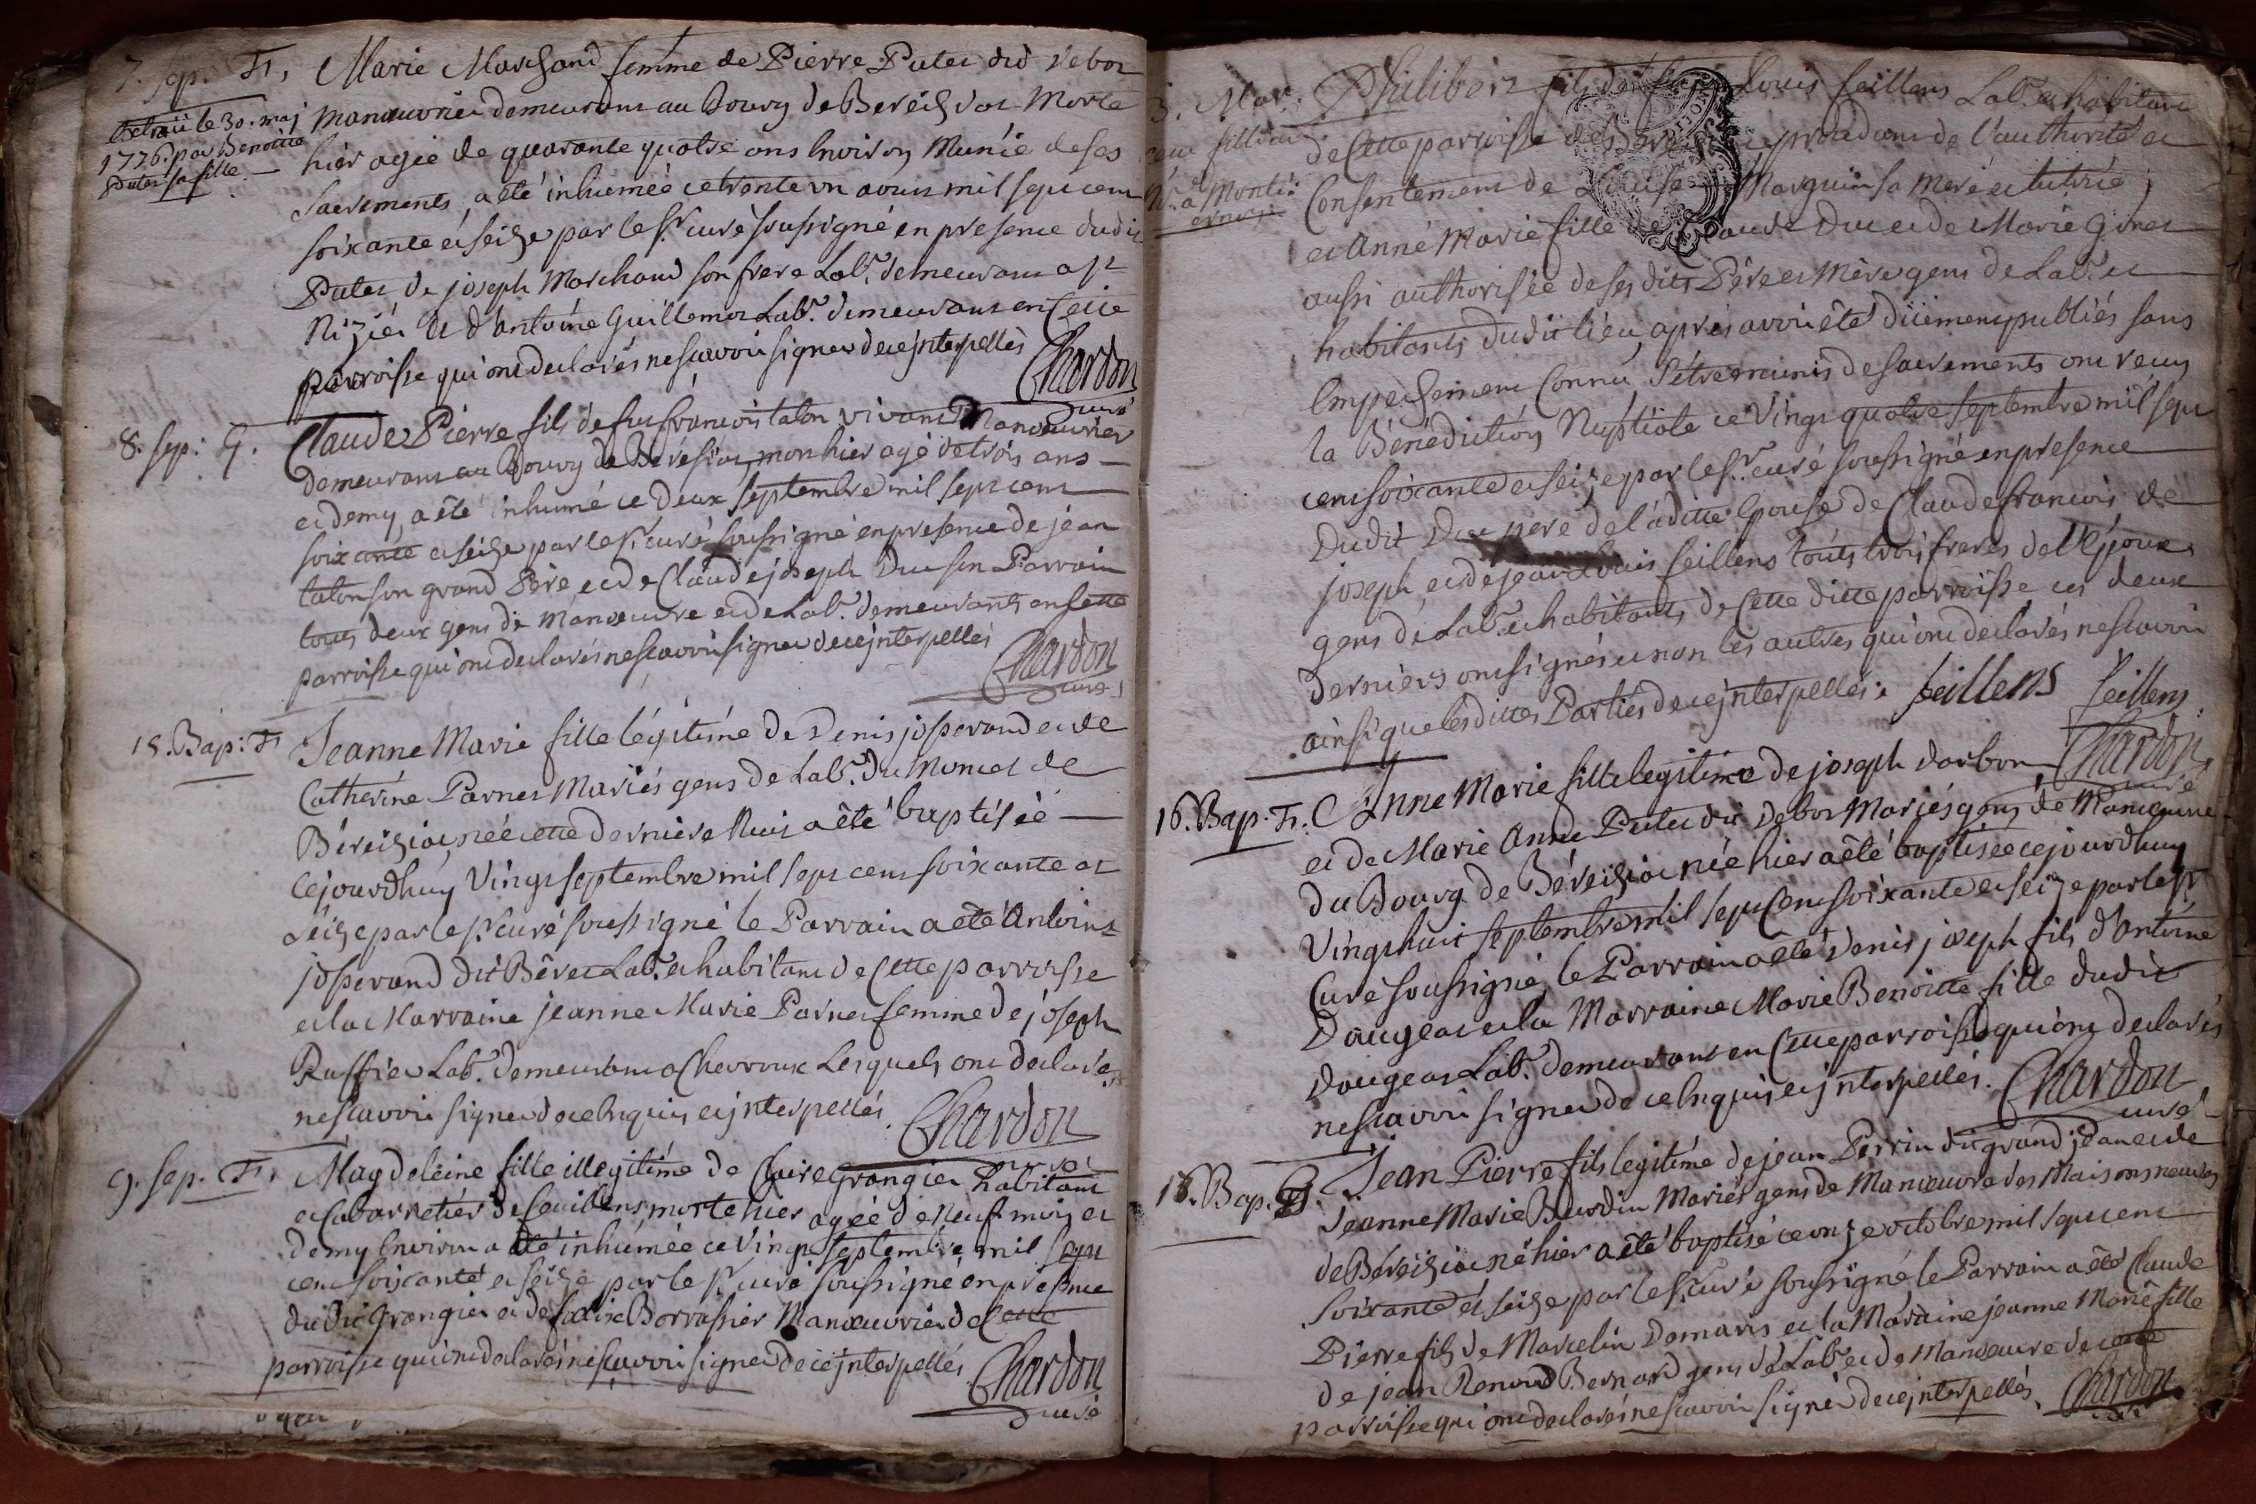 7. sep. F.
Extraii le 30. maj
1776. par Benoitte
Putet sa fille.
Marie Marchand femme de Pierre Putet dit debor
manœuvrier demeurant au Bourg de Béréiziat Morte
hier agée de quarante quatre ans Environ Munie de ses
sacrements, a été inhumée ce trente un aoust mil sept cent
soixante et seize par le Sr. curé soussigné en presence dudit
Putet de joseph Marchand son frere Labr. demeurant a St
Nizier et d'Antoine Guillemot Labr. demeurant en Cette
parroisse qui ont declarés ne scavoir signer de ce jnterpellés
Chardon
curé
8. sep: G.
Claude Pierre fils de feu francois talon vivant Manœuvrier
demeurant au Bourg de Béréziat, mort hier agé de trois ans
et demy, a été inhumé ce deux septembre mil sept cent
soixante et seize par le Sr. curé soussigné en presence de jean
talon son grand Père et de Claude joseph Duc son Parrain
tous deux gens de Manœuvre et de Labr. demeurants en cette
parroisse qui ont declarés ne scavoir signer de ce jnterpellés
Chardon
curé
15. Bap: F.
Jeanne Marie fille légitime de Denis josserand et de
Catherine Parnet Mariés gens de Labr. du Moncel de
Béréiziat, née cette derniere Nuit a été baptisée
Cejourdhuy Vingt septembre mil sept cent soixante et
seize par le Sr. curé soussigné le Parrain a été Antoine
josserand dit Bêret Labr. et habitant de Cette parroisse
et la Marraine jeanne Marie Parnet femme de joseph
Ruffier Labr. demeurant a Chevroux Lesquels ont declarés
ne scavoir signer de ce Enquis et jnterpellés.
Chardon
curé
9. sep. F.
Magdeleine fille illegitime de Claire Grangier habitant
et Cabarretier de morte hier agée de Neuf mois et
demy Environ a été inhumée ce Vingt septembre mil sept
cent soixante et seize par le Sr. curé soussigné en présence
dudit Grangier et de felix Borrassier Manœuvrier de Cette
parroisse qui ont declarés ne scavoir signer de ce jnterpellés
Chardon
curé
3. Mar:
Philibert fils de feu Louis feillens Labr. et habitant
de Cette parroisse de procedant de l'authorité et
Consentement de Louise Marguin sa mere et tutrice,
et Anne Marie fille de Claude Duc et de Marie Giret
aussi authorisée de ses dits Père et Mère gens de Labr. et
habitants dudit lieu, après avoir été düement publiés sans
Empechement Connu, s'être munis de sacrements ont recus
la Bénédiction Nuptiale ce Vingt quatre septembre mil sept
cent soixante et seize par le Sr. curé soussigné en presence
dudit Duc pere de laditte Epouse de Claude francois, de
joseph et de jean Louis feillens touts trois freres de l'Epoux
gens de Labr. et habitants de Cette ditte parroisse ces deux
derniers ont signés et non les autres qui ont declarés ne scavoir
ainsi que lesdittes Parties de ce jnterpellés. feillens feillens.
Chardon
curé
16. Bap. F.
Anne Marie fille legitime de joseph Darbon
et de Marie Anne Putet dit debor Mariés gens de Manœuvre
du Bourg de Béréiziat née hier a été baptisée cejourdhuy
Vingt huit septembre mil sept Cent soixante et seize par le Sr.
Curé soussigné, le Parrain a été Denis joseph fils d'Antoine
Daugeat et la Marraine Marie Benoitte fille dudit
Daugeat Labr. demeurant en Cette parroisse qui ont declarés
ne scavoir signer de ce Enquis et jnterpellés.
Chardon
curé
Jean Pierre fils legitime de jean Perrin dit grand jdan et de
Jeanne Marie Burdin Mariés gens de Manœuvre des Maisons neuves
de Béréiziat né hier a été baptisé ce onze octobre mil sept cent
soixante et seize par le Sr. curé soussigné le Parrain a été Claude
Pierre fils de Marcelin Damaris et la Maraine jeanne Marie fille
de jean Renoud Bernard gens de Labr. et de Manœuvre de cette
parroisse qui ont declarés ne scavoir signer de ce jnterpellés.
Chardon